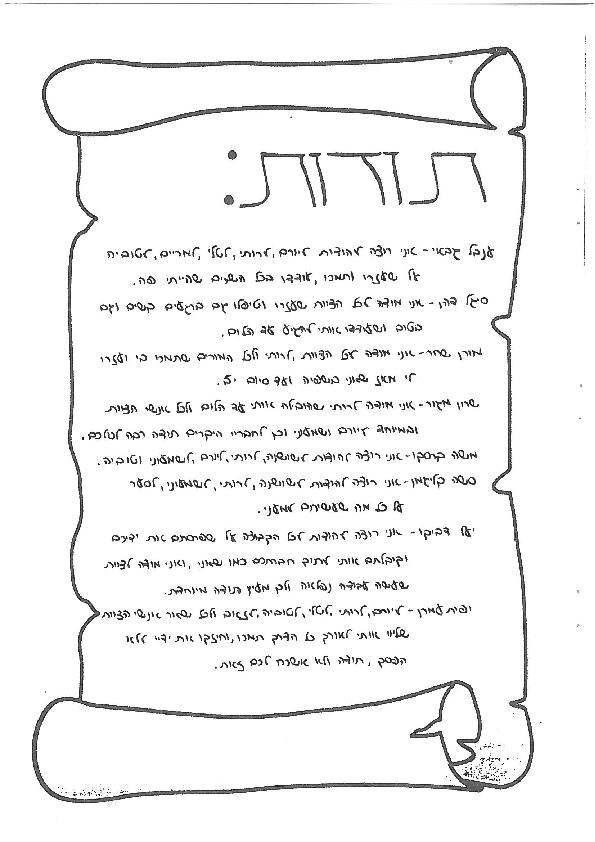 תודות:
ענבל גבאי - אני רוצה להודות ליורם, לרותי, לטלי, למריים, לטוביה
על שעזרו ותמכו, עודדו בכל השנים שהייתי פה.
סיגל דהן - אני מודה לכל הצוות שעזרו וטיפלו גם ברגעים קשים וגם
בטוב ושעודדו אותי להגיע עד הלום.
מורן שחר - אני מודה לכל הצוות, לרותי ולכל המורים שתמכו בי ועזרו
לי מאז שאני בשפיה ועד סיום יב.
שרון מגור - אני מודה לרותי שהובילה אותי עד הלום ולכל אנשי הצוות
ובמיוחד ליורם ושמעוני וכן לחבריי היקרים תודה רבה לכולכם.
מנשה ברסקו - אני רוצה להודות לשושנה, לרותי, ליורם, לשמעוני וטוביה.
סשה קליגמן - אני רוצה להודות לשושנה, לרותי, לשמעוני, לסער
על כל מה שעושים למעני.
יעל דביקו - אני רוצה להודות לכל הקבוצה על שפרסתם את ידיכם
וקיבלתם אותי לתוך חברתכם כמו שאני, ואני מודה לצוות
שעשה עבודה נפלאה ולכן מגיע תודה מיוחדת.
יפית עמרן - ליורם, לרותי, לטלי, לטוביה, ולכל שאר אנשי הצוות
שליוו אותי לאורך כל הדרך תמכו, וחיזקו את ידיי ללא
הפסק, תודה ולא אשכח לכם זאת.